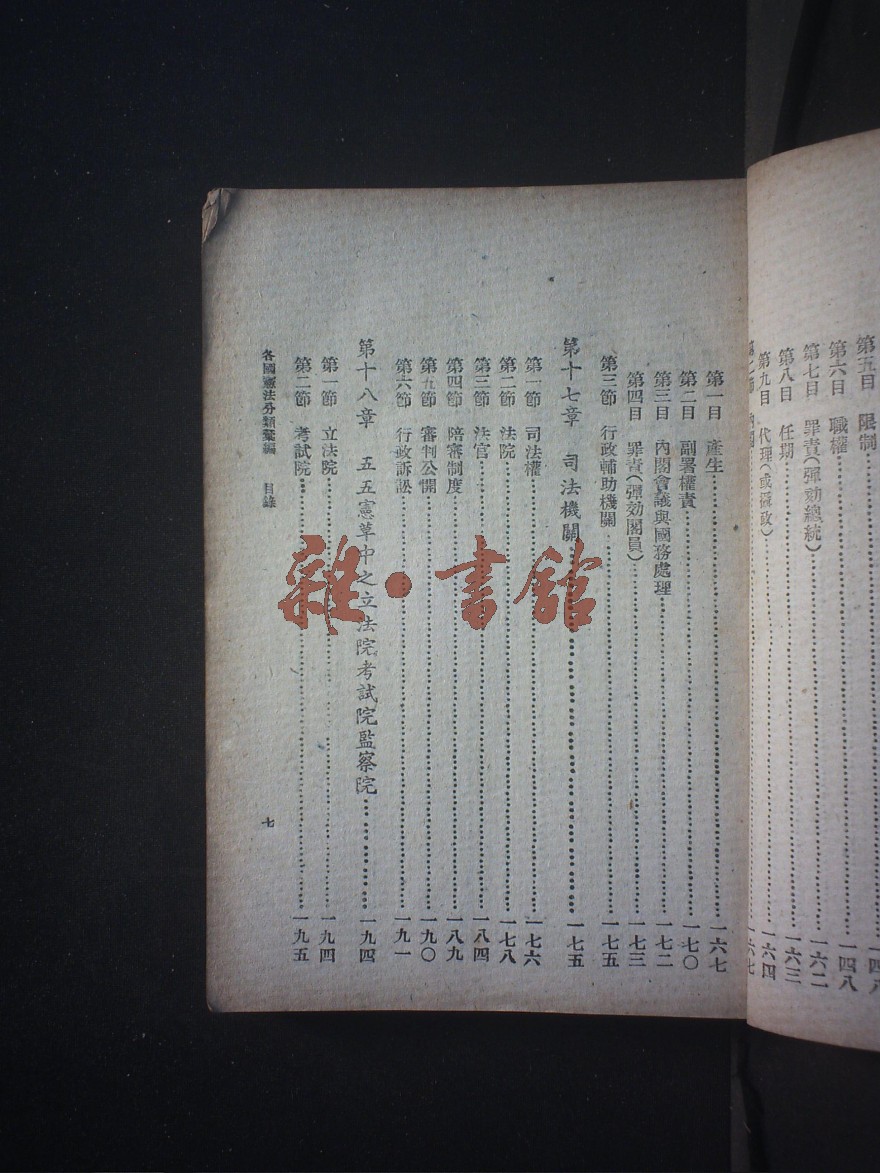 第五目　限制……一四八
第六目　職權……一四八
第七目　罪責(彈劾總統)……一六二
第八目　任期……一六三
第九目　代理(或攝政)……一六四
第二節　內閣……一六七
第一目　產生……一六七
第二目　副署權責……一七〇
第三目　內閣會議與國務處理……一七二
第四目　罪責(彈劾閣員)……一七三
第三節　行政輔助機關……一七五
第十七章　司法機關……一七五
第一節　司法權……一七六
第二節　法院……一七八
第三節　法官……一八四
第四節　陪審制度……一八九
第五節　審判公開……一九〇
第六節　行政訴訟……一九一
第十八章　五五憲草中之立法院考試院監察院……一九四
第一節　立法院……一九四
第二節　考試院……一九五
各國憲法分類彙編　目錄　七
雜·書館